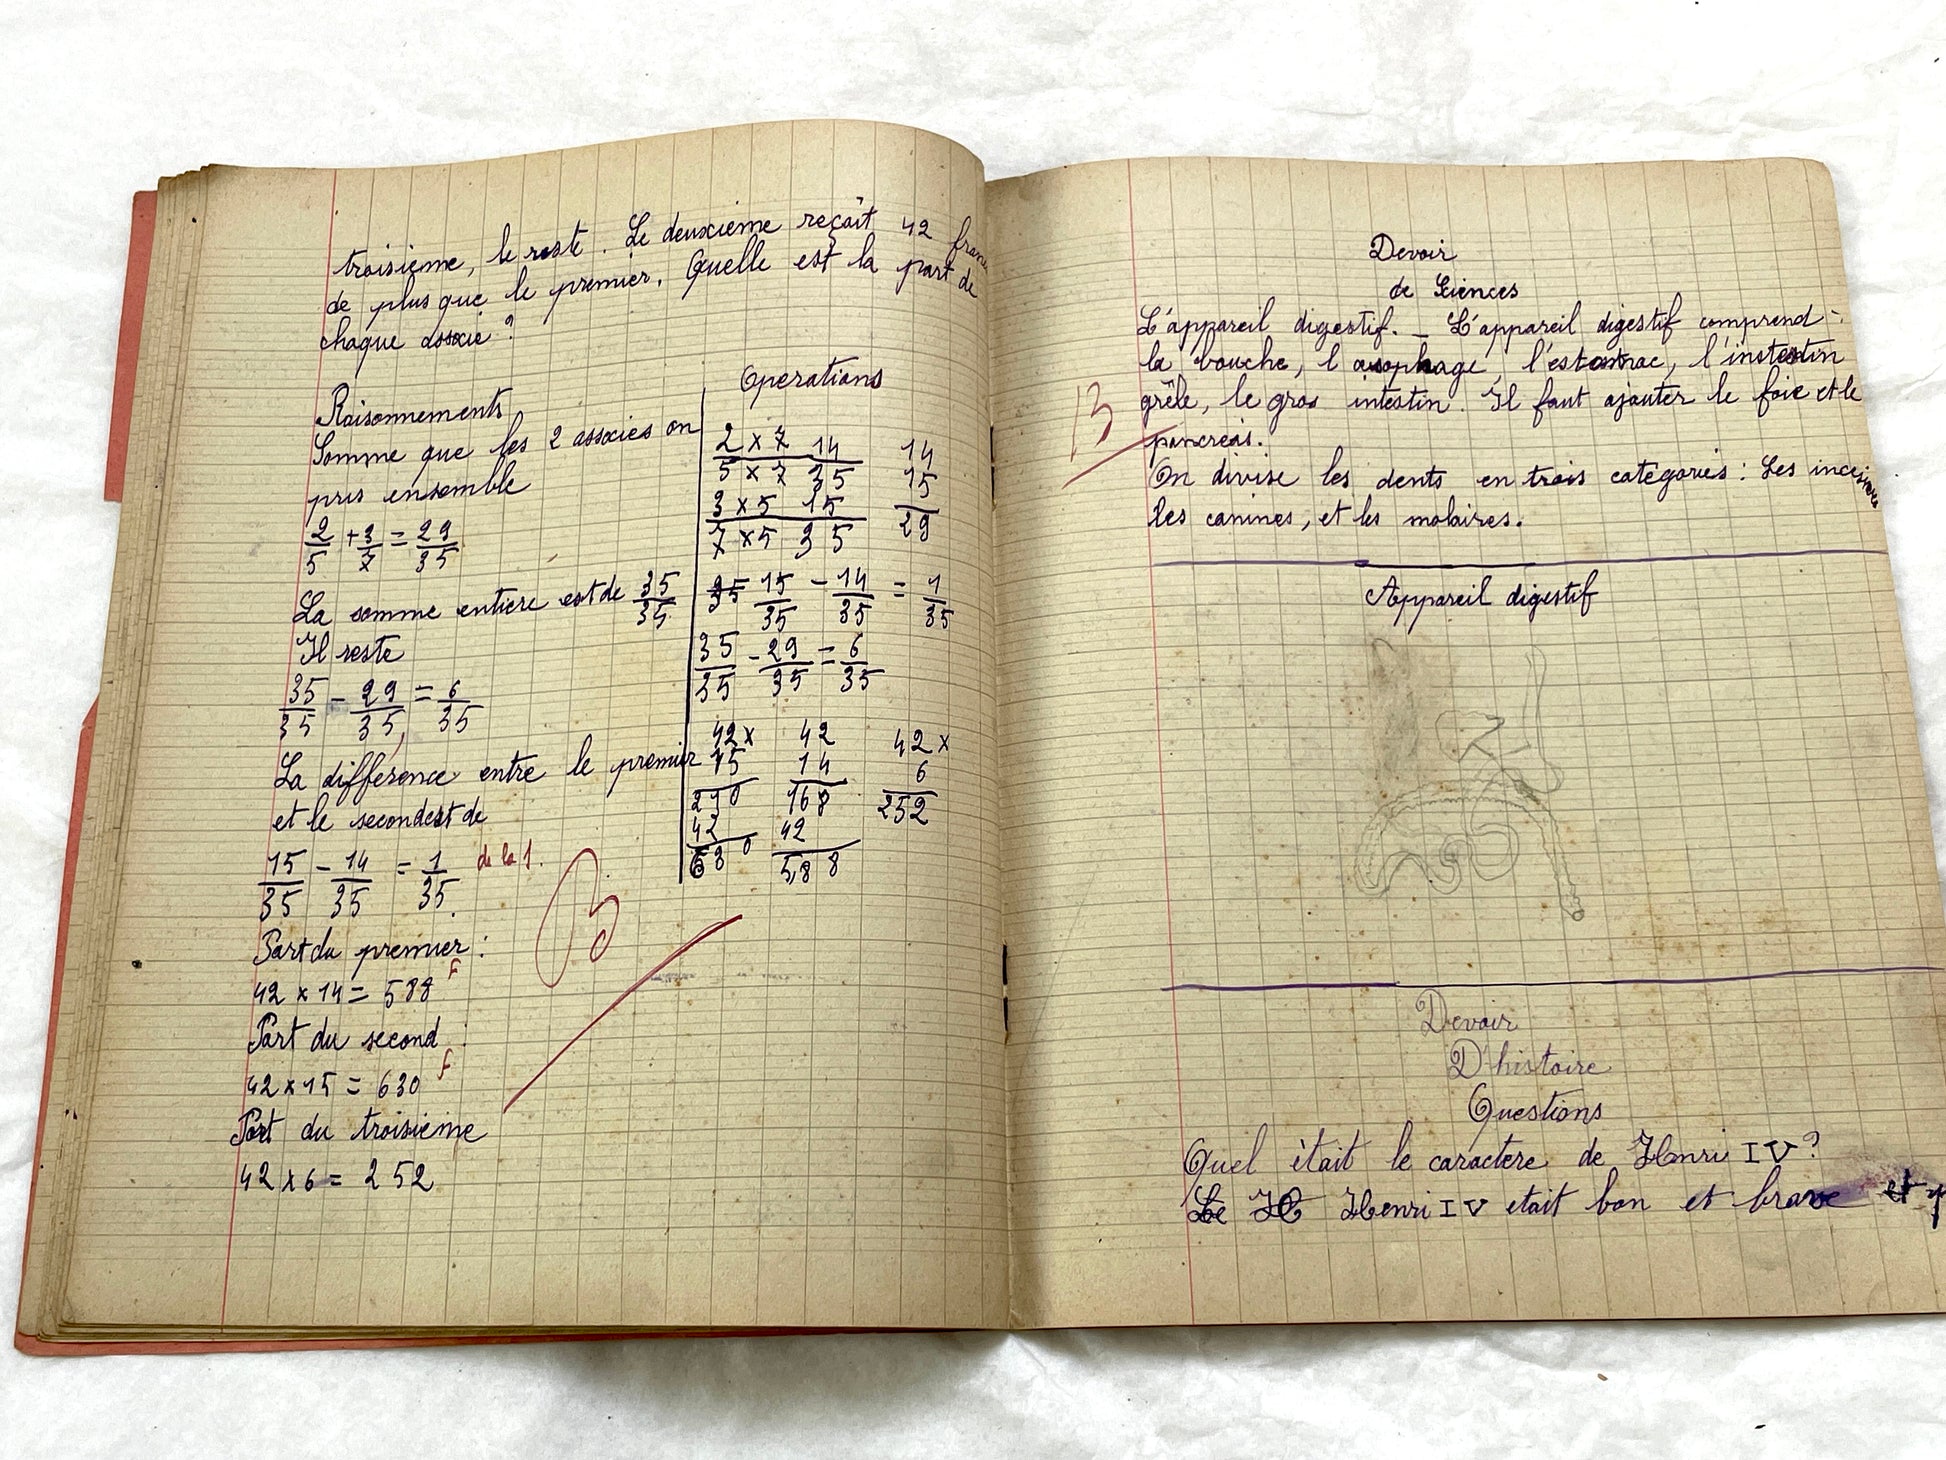 troisième, le reste. Le deuxième reçoît 42 francs
de plus que le premier. Quelle est la part de
chaque associé ?
Raisonnements
Somme que les 2 associés on
pris ensemble
2/5 + 3/7 = 29/35
La somme entiere est de 35/35
Il reste
35/35 - 29/35 = 6/35
La différence entre le premier
et le second est de
15/35 - 14/35 = 1/35 de la 1.
Part du premier :
42 x 14 = 588 F
Part du second :
42 x 15 = 630 F
Part du troisième
42 x 6 = 252
B
Operations
2 x 7 14 14
5 x 7 35 15
3 x 5 15 29
7 x 5 35
35 15/35 - 14/35 = 1/35
35/35 - 29/35 = 6/35
42 x 42 42 x
15 14 6
210 168 252
42 42
630 5,88
Devoir
de Sciences
L'appareil digestif. _ L'appareil digestif comprend :
la bouche, l œsophage, l'estomac, l'intestin
grêle, le gros intestin. Il faut ajouter le foie et le
pancréas.
On divise les dents en trois catégories : Les incisives
les canines, et les molaires.
B
Appareil digestif
Devoir
D'histoire
Questions
Quel était le caractère de Henri IV ?
Le H Henri IV etait bon et brave et